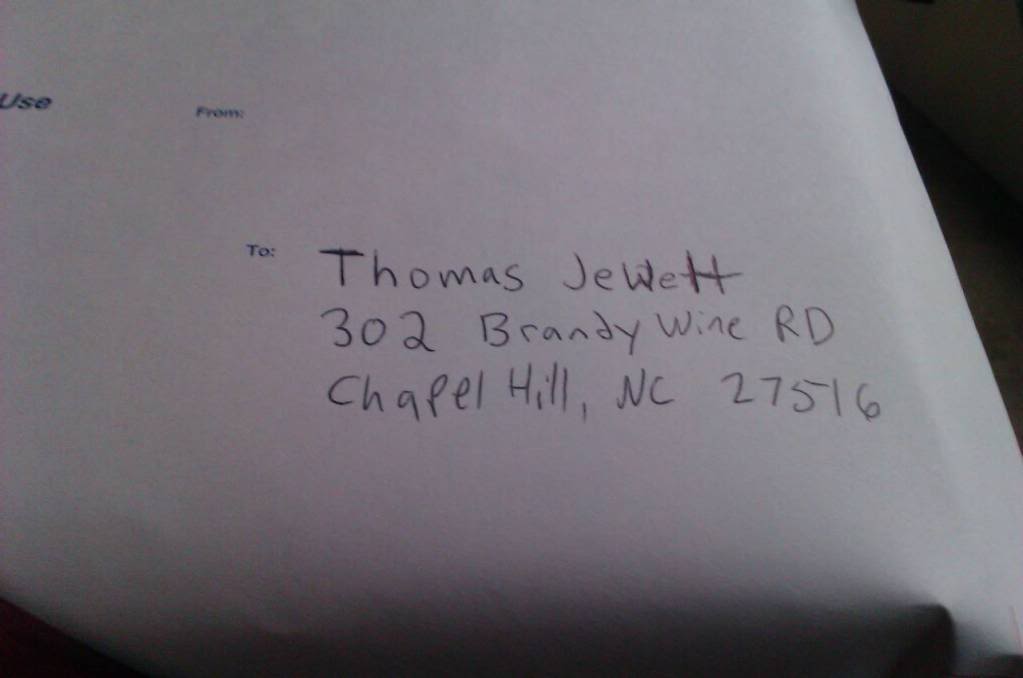 Use
From:
To:
Thomas Jewett
302 Brandy Wine RD
Chapel Hill, NC 27516